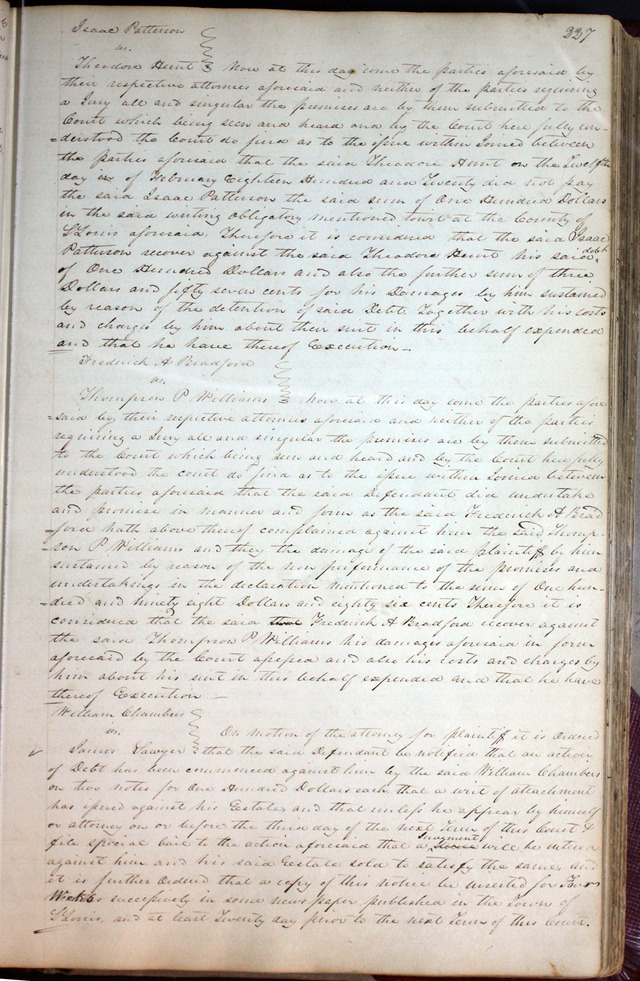 Isaac Patterson
vs.
227
Theodore Hunt } Now at this day come the parties aforesaid by
their respective attornies aforesaid and neither of the parties requiring
a Jury all and singular the premises are by them submitted to the
Court which being seen and heard and by the Court here fully un-
=derstood the Court do find as to the issue within Joined between
the parties aforesaid that the said Theodore Hunt on the Twelfth
day of February Eighteen Hundred and Twenty did not pay
the said Isaac Patterson the said sum of One Hundred Dollars
in the said writing obligatory mentioned towit at the County of
St Louis aforesaid. Therefore it is considered that the said Isaac
Patterson recover against the said Theodore Hunt his said debt
of One Hundred Dollars and also the further sum of three
Dollars and fifty seven cents for his Damages by him sustained
by reason of the detention of said Debt Together with his costs
and charges by him about their suit in this behalf expended
and that he have thereof Execution —
Frederick A Bradford
vs.
Thompson P Williams } Now at this day come the parties afore
=said by their respective attornies aforesaid and neither of the parties
requiring a Jury all and singular the premises are by them submitted
to the Court which being seen and heard and by the Court here fully
understood the court do find as to the issue within Joined between
the parties aforesaid that the said Defendant did undertake
and promise in manner and form as the said Frederick A Brad
=ford hath above thereof complained against him the said Thomp-
=son P Williams and they the damage of the said plaintiff by him
sustained by reason of the non performance of the promises and
undertakings in the declaration mentioned to the sum of One hun-
=dred and ninety eight Dollars and eighty six cents Therefore it is
considered that the said Frederick A Bradford recover against
the said Thompson P Williams his damages aforesaid in form
aforesaid by the Court assessed and also his costs and charges by
him about his suit in this behalf expended and that he have
thereof Execution —
William Chambers
vs.
James Sawyer } On motion of the attorney for plaintiff it is Ordered
that the said Defendant be notified that an action
of Debt has been commenced against him by the said William Chambers
on two notes for One Hundred Dollars each that a writ of attachment
has issued against his Estate and that unless he appear by himself
or attorney on or before the third day of the next Term of this Court &
file special bail to the action aforesaid that a Judgment will be entered
against him and his said Estate sold to satisfy the same, and
it is further Ordered that a copy of this notice be inserted for Four
Weeks successively in some news paper published in the Town of
St Louis, and at least Twenty day prior to the next Term of this Court.